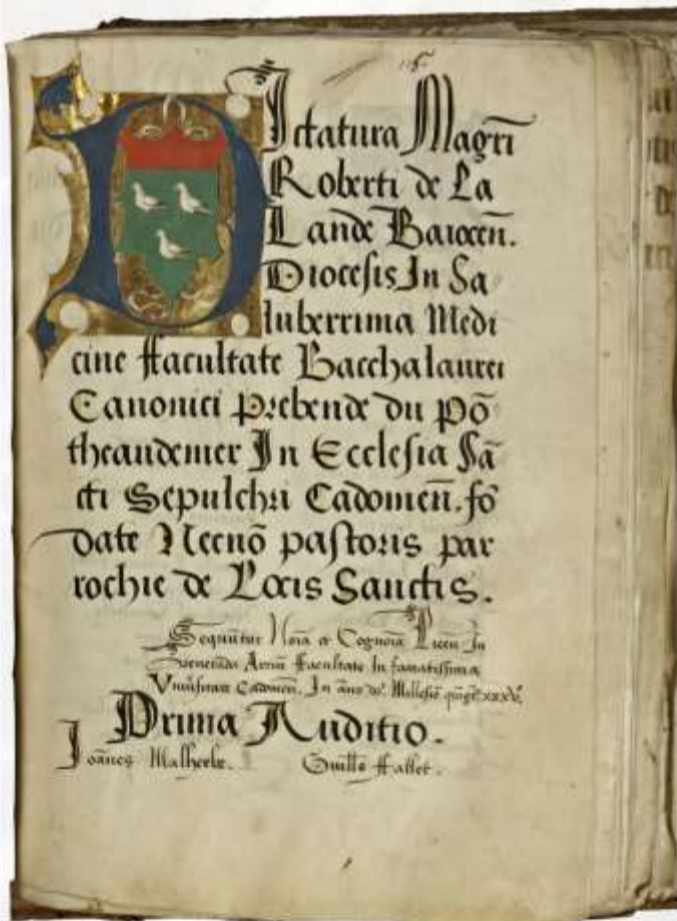 Dictatura Magrī
Roberti de La
Lande Baiocen̄.
Diocesis In Sa
luberrima Medi
cine ffacultate Bacchalaurei
Canonici Prebende du Pō
theaudemer In Ecclesia Sā
cti Sepulchri Cadomen̄. fō
date Necnō pastoris par
rochie de Locis Sanctis.
Sequuntur Noīa et Cognoīa Licen In
Veneranda Artiū ffacultate In famatissima
Vniuersitate Cadomen̄. In āno dō. Millesīo quīgē. xxxv.
Prima Auditio.
Joānes Malherbe. Guillē ffallet.